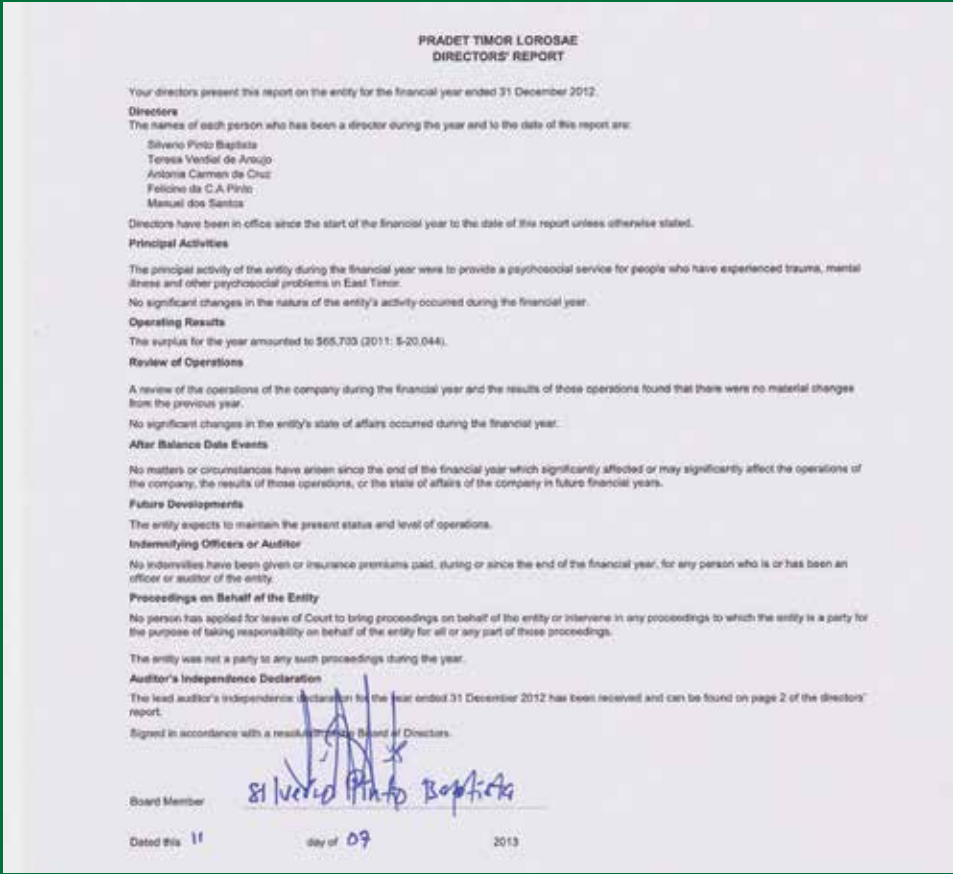 PRADET TIMOR LOROSAE
DIRECTORS' REPORT
Your directors present this report on the entity for the financial year ended 31 December 2012.
Directors
The names of each person who has been a director during the year and to the date of this report are:
Silverio Pinto Baptista
Teresa Verdial de Araujo
Antonia Carmen da Cruz
Felicino da C.A Pinto
Manuel dos Santos
Directors have been in office since the start of the financial year to the date of this report unless otherwise stated.
Principal Activities
The principal activity of the entity during the financial year were to provide a psychosocial service for people who have experienced trauma, mental
illness and other psychosocial problems in East Timor.
No significant changes in the nature of the entity's activity occurred during the financial year.
Operating Results
The surplus for the year amounted to (2011: $-20,044).
Review of Operations
A review of the operations of the company during the financial year and the results of those operations found that there were no material changes
from the previous year.
No significant changes in the entity's state of affairs occurred during the financial year.
After Balance Date Events
No matters or circumstances have arisen since the end of the financial year which significantly affected or may significantly affect the operations of
the company, the results of those operations, or the state of affairs of the company in future financial years.
Future Developments
The entity expects to maintain the present status and level of operations.
Indemnifying Officers or Auditor
No indemnities have been given or insurance premiums paid, during or since the end of the financial year, for any person who is or has been an
officer or auditor of the entity.
Proceedings on Behalf of the Entity
No person has applied for leave of Court to bring proceedings on behalf of the entity or intervene in any proceedings to which the entity is a party for
the purpose of taking responsibility on behalf of the entity for all or any part of those proceedings.
The entity was not a party to any such proceedings during the year.
Auditor's Independence Declaration
The lead auditor's independence declaration for the year ended 31 December 2012 has been received and can be found on page 2 of the directors'
report.
Signed in accordance with a resolution of the Board of Directors.
Board Member Silverio Pinto Baptista
Dated this 11 day of 07 2013